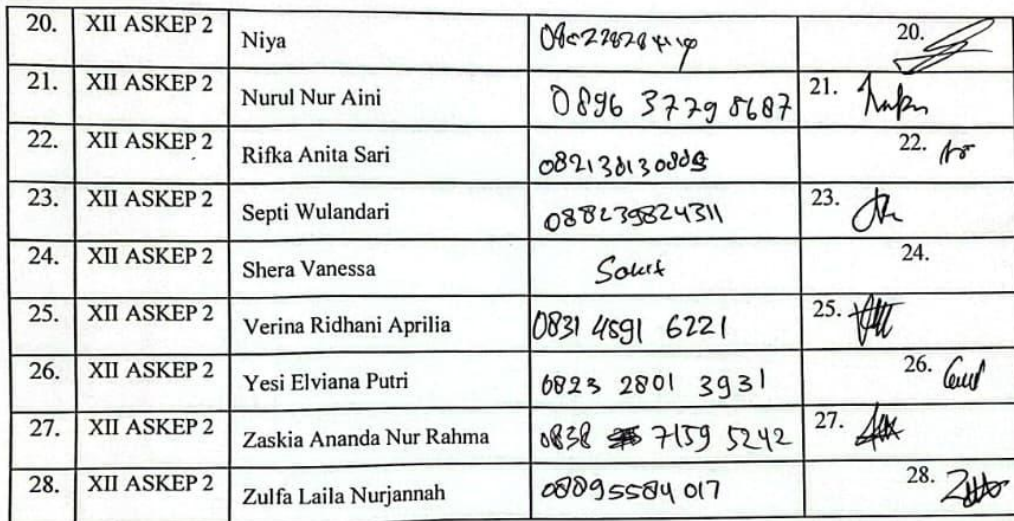 20. XII ASKEP 2 Niya 20.
21. XII ASKEP 2 Nurul Nur Aini 0896 3779 8687 21.
22. XII ASKEP 2 Rifka Anita Sari 22.
23. XII ASKEP 2 Septi Wulandari 088239824311 23.
24. XII ASKEP 2 Shera Vanessa Sakit 24.
25. XII ASKEP 2 Verina Ridhani Aprilia 0831 4591 6221 25.
26. XII ASKEP 2 Yesi Elviana Putri 0823 2801 3931 26.
27. XII ASKEP 2 Zaskia Ananda Nur Rahma 0838 7159 5242 27.
28. XII ASKEP 2 Zulfa Laila Nurjannah 08895584017 28.